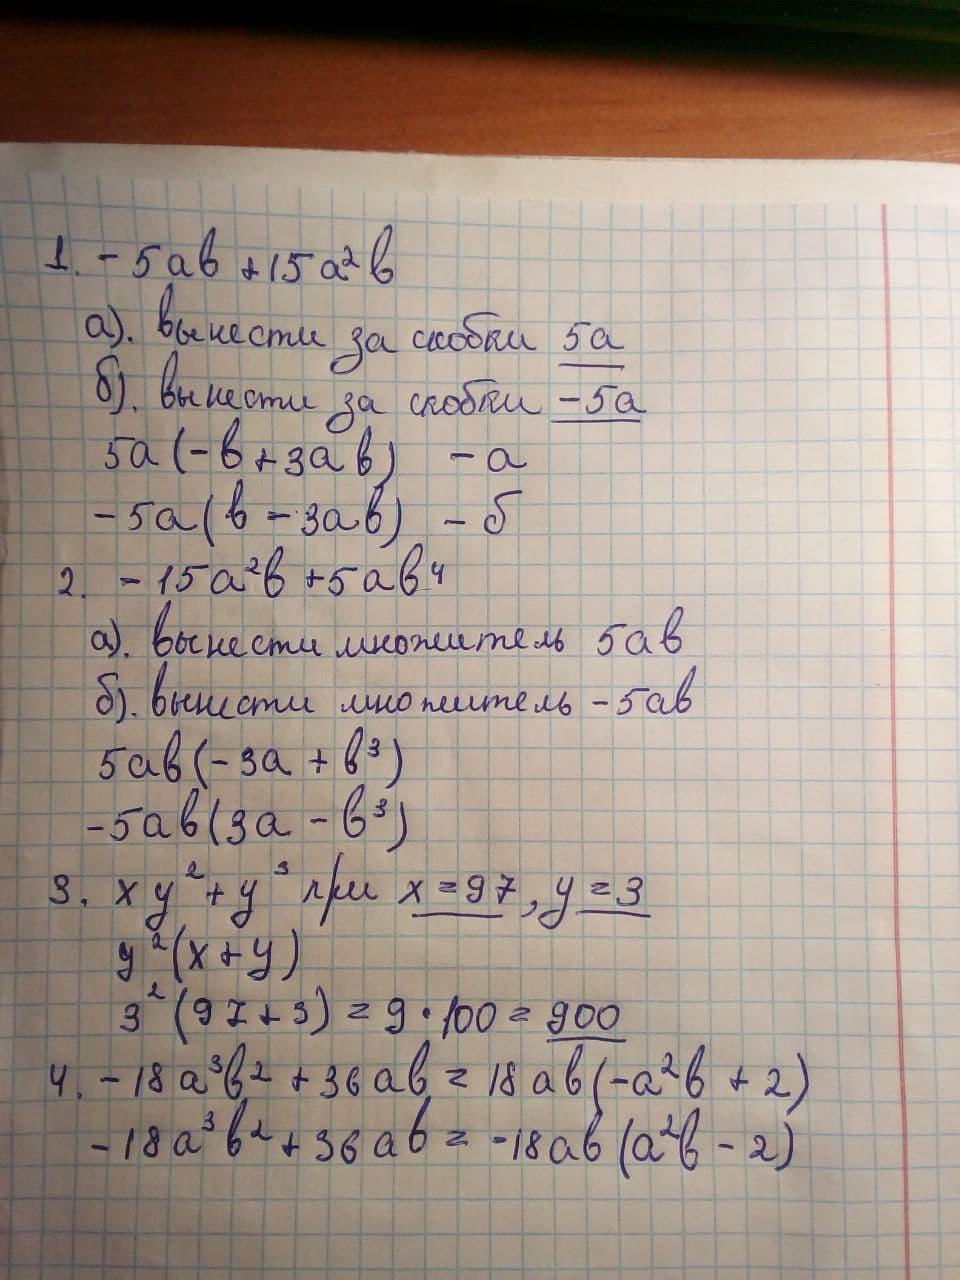 1. -5ab+15a²b
а). вынести за скобки 5a
б). вынести за скобки -5a
5a(-b+3ab) - а
-5a(b-3ab) - б
2. -15a²b+5ab⁴
а). вынести множитель 5ab
б). вынести множитель -5ab
5ab(-3a+b³)
-5ab(3a-b³)
3. xy²+y³ при x=97, y=3
y²(x+y)
3²(97+3)=9·100=900
4. -18a³b²+36ab=18ab(-a²b+2)
-18a³b²+36ab=-18ab(a²b-2)